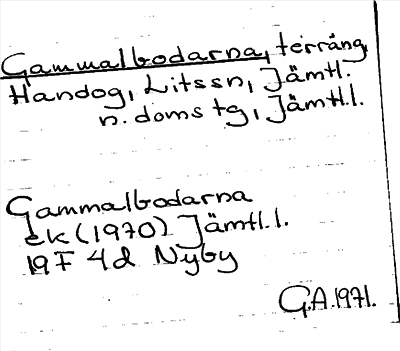 Gammalbodarna, terräng,
Handog, Litssn, Jämtl.
n. doms tg, Jämtl.l.
Gammalbodarna
ek (1970) Jämtl.l.
19F 4d Nyby
G.A. 1971.